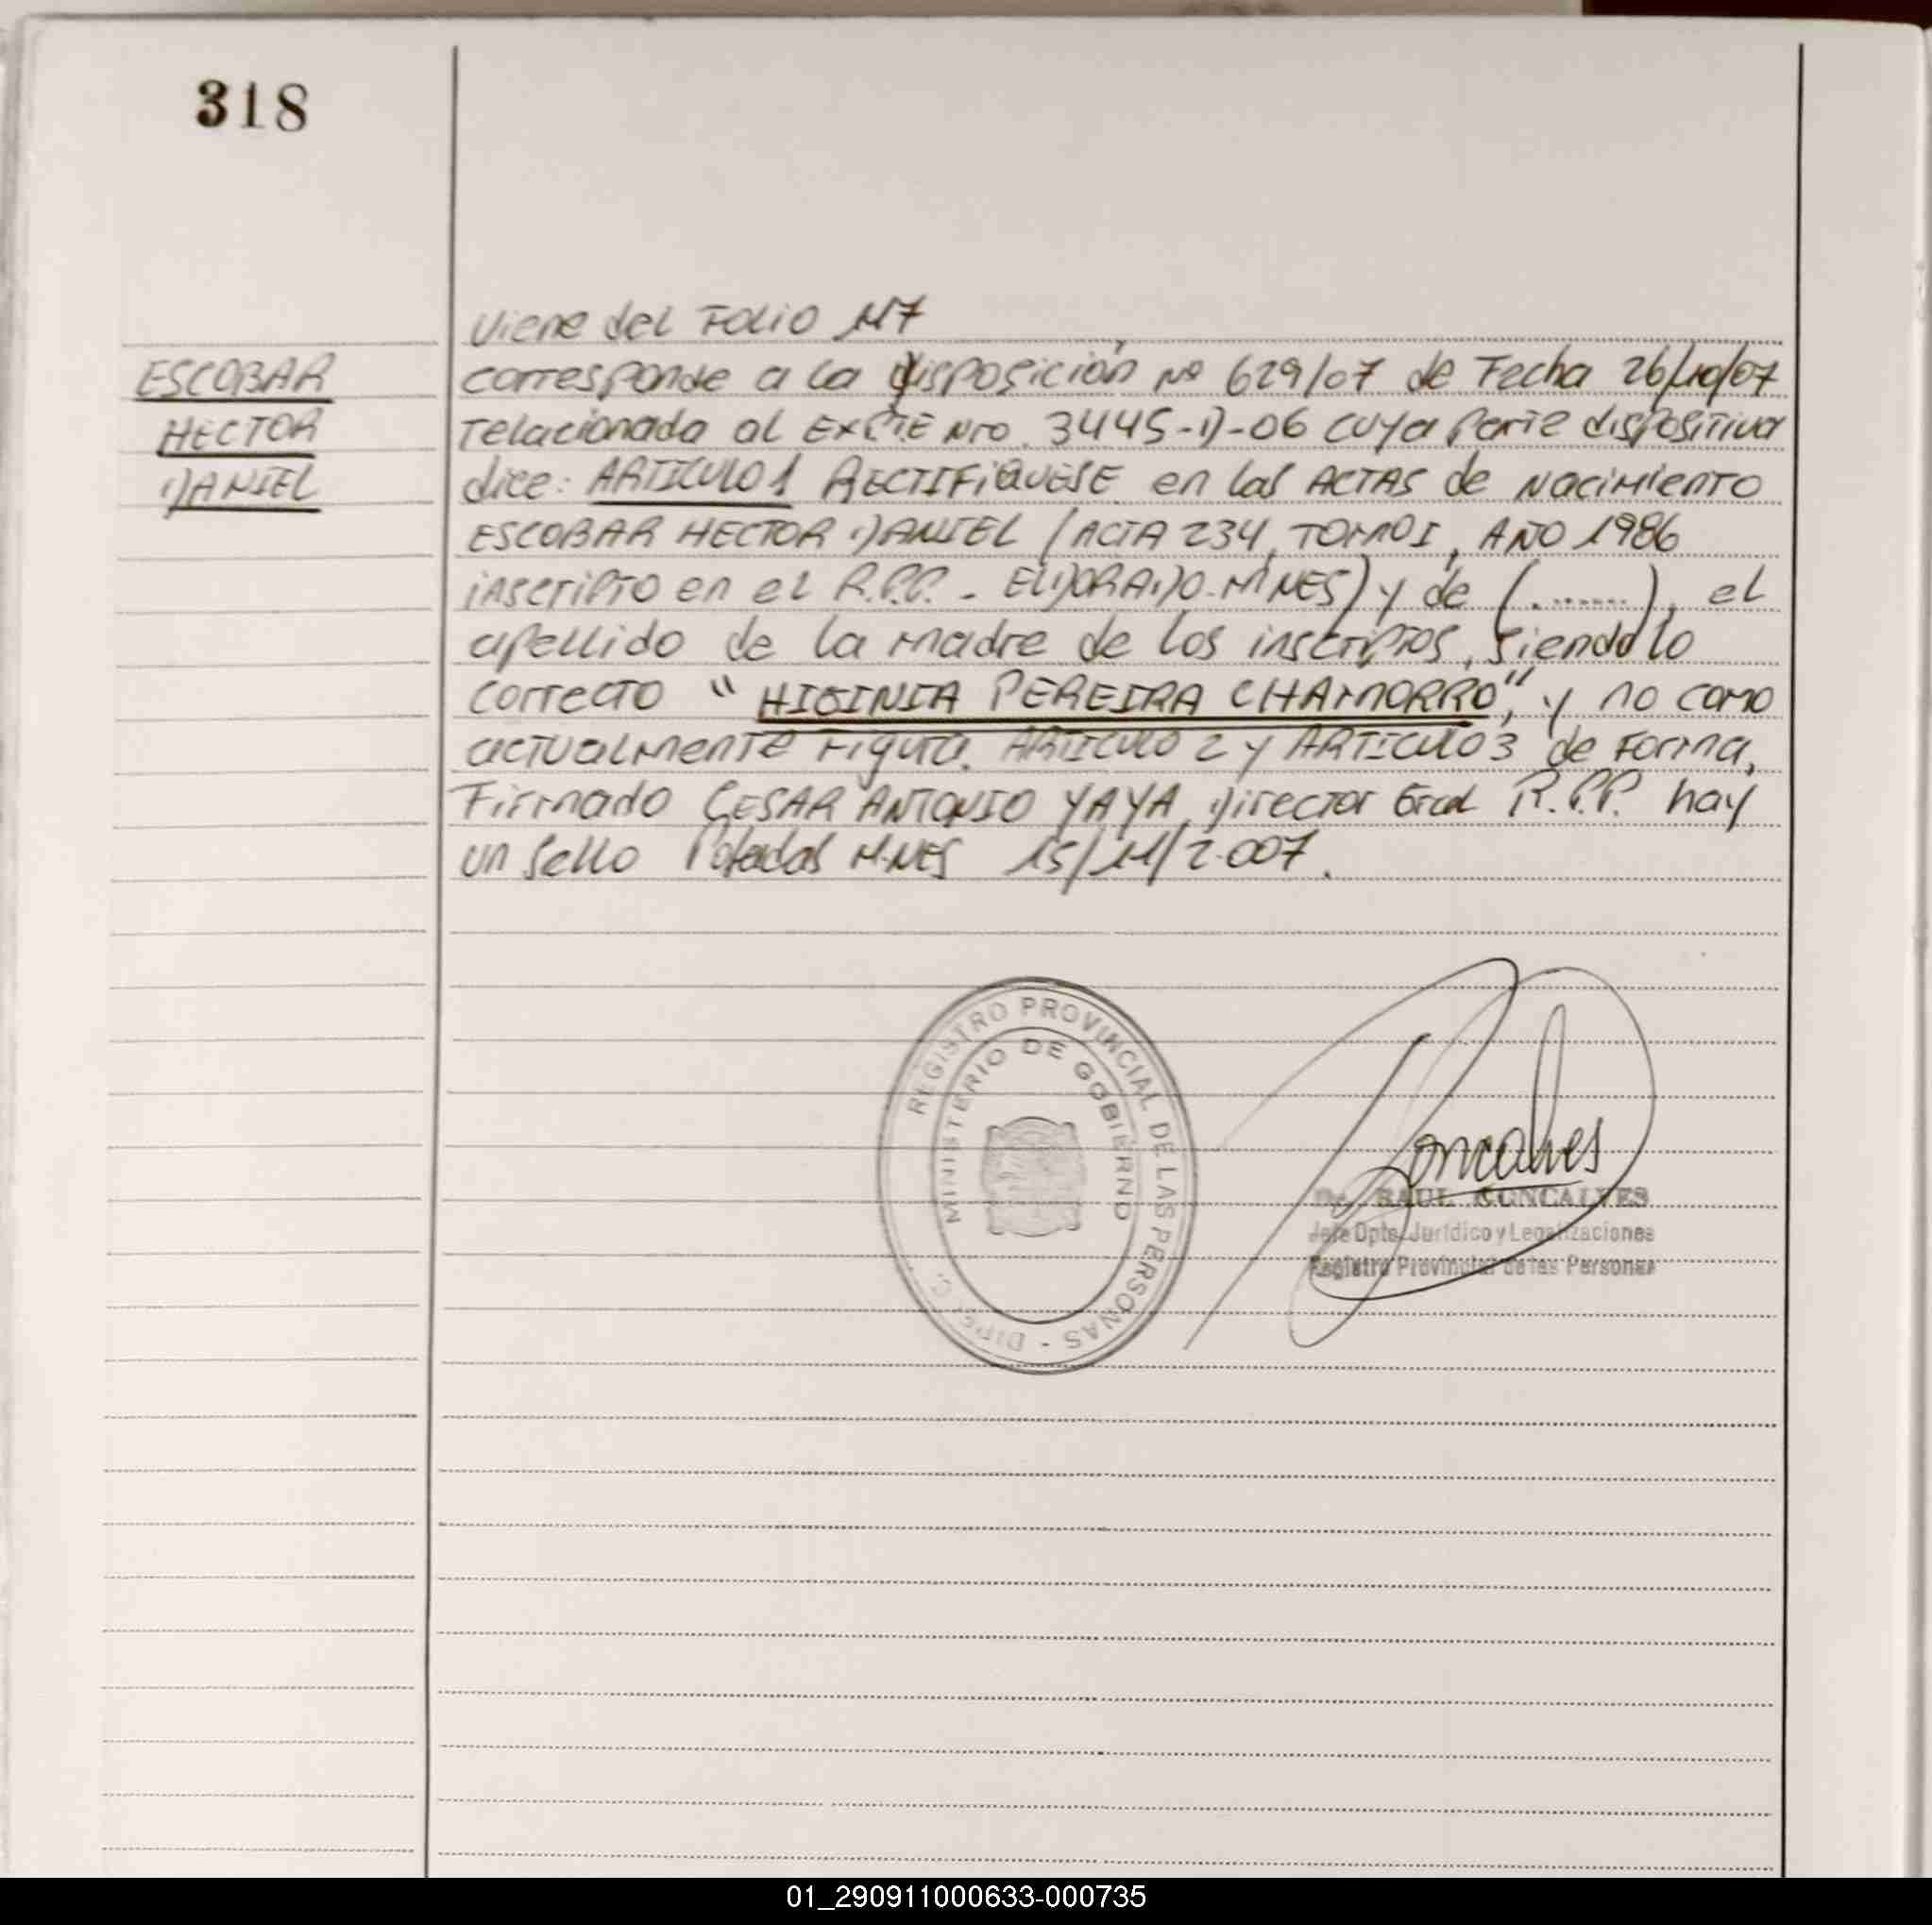 318
Viene del Folio 117
ESCOBAR
HECTOR
DANIEL
corresponde a la disposición Nº 629/07 de Fecha 26/10/07
relacionada al EXPTE Nro. 3445-D-06 cuya parte dispositiva
dice: ARTICULO 1 RECTIFIQUESE en las ACTAS de Nacimiento
ESCOBAR HECTOR DANIEL (ACTA 234, TOMO I, AÑO 1986
inscripto en el R.P.P. - ELDORADO-MNES) y de (........), el
apellido de la madre de los inscriptos, siendo lo
correcto "HIGINIA PEREIRA CHAMORRO", y no como
actualmente Figura. ARTICULO 2 y ARTICULO 3 de Forma,
Firmado CESAR ANTONIO YAYA, Director Gral R.P.P. hay
un sello Posadas M.NES 15/11/2.007.
REGISTRO PROVINCIAL DE LAS PERSONAS -
MINISTERIO DE GOBIERNO
Goncalves
RAUL GONCALVES
Jefe Dpto. Jurídico y Legalizaciones
Registro Provincial de las Personas
01_290911000633-000735